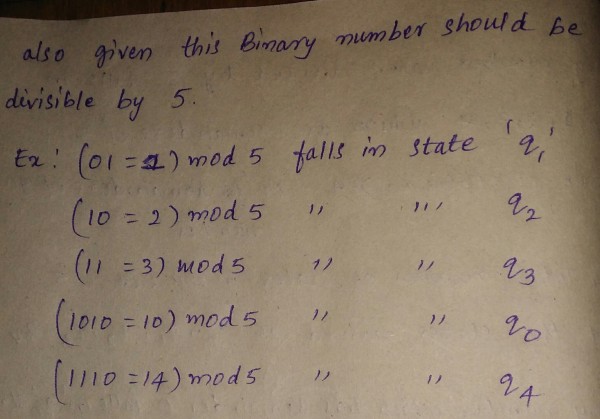 also given this Binary number should be
divisible by 5.
Ex: (01 = 1) mod 5 falls in state 'q₁'
(10 = 2) mod 5 " "' q₂
(11 = 3) mod 5 " " q₃
(1010 = 10) mod 5 " " q₀
(1110 = 14) mod 5 " " q₄